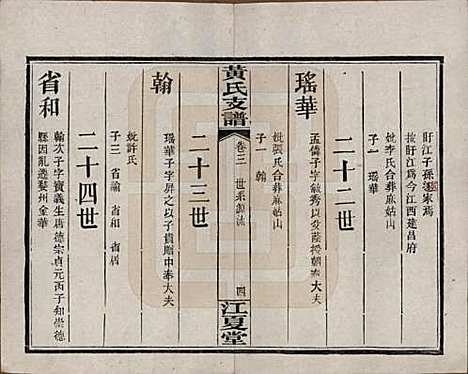 盱江子孫家焉
按盱江爲今江西建昌府
妣李氏合葬麻姑山
子一 瑤華
二十二世
瑤華
孟儒子字敏秀以父蔭授朝奉大夫
妣張氏合葬麻姑山
子一 翰
黃氏支譜
卷三 世系源流 四
江夏堂
二十三世
翰
瑤華子字屏之以子貴贈中奉大夫
妣許氏
子三 省諭 省和 省居
二十四世
省和
翰次子字寶義生唐德宗貞元丙子知崇德
縣因亂遷婺州金華